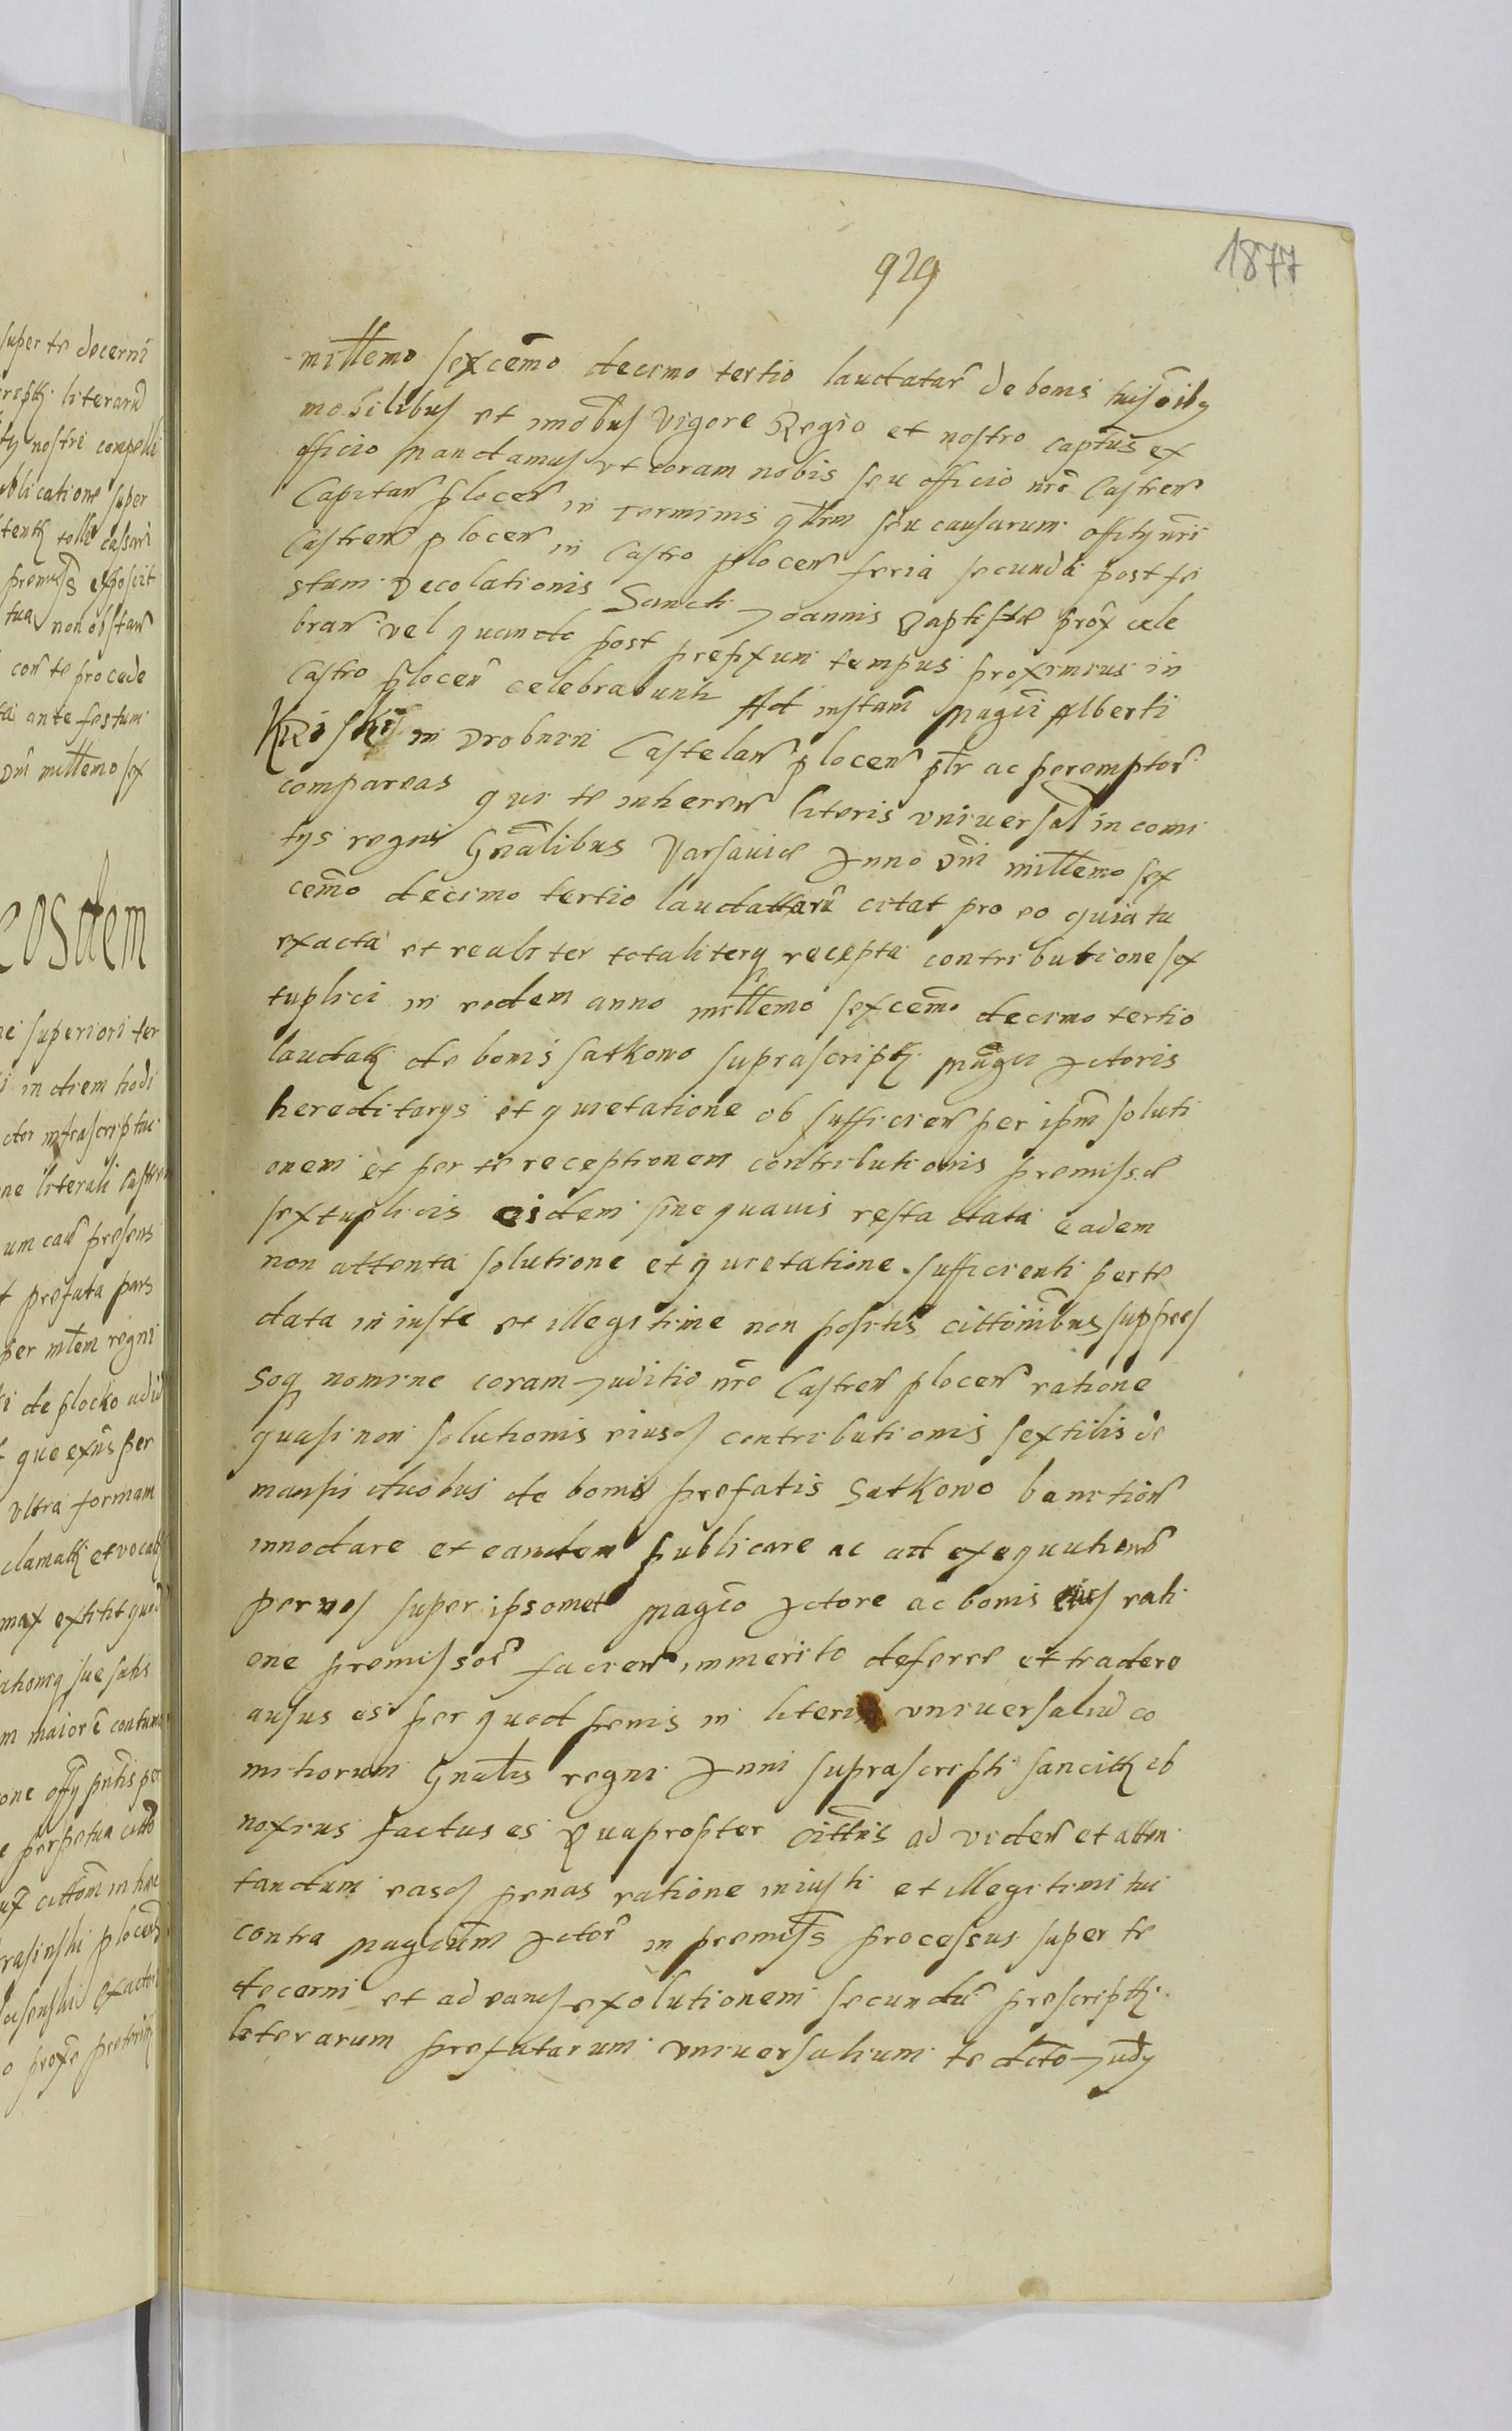 super te decerni
literarũ
nostri compelli
publicatione super
premiss exposcit
tua non obstan̄
con̄ te procede
ante festum
Dni millemo sex
eosdem
superiori ter
in diem hodi
actor infrascriptus
literali Castren
presens
prefata pars
per mtem regni
de plocko ad id
per
ultra formam
et vocat
extitit quod
sue satis
maiorẽ contuma
perpetua
citton̄ in hac
ploceñ
exactor
929
1877
millemo sexcem̃o decimo tertio laudatar̃ de bonis tuis õibq
mobilibus et imobus vigore Regio et nostro captus̃ ex
officio mandamus ut coram nobis seu officio nr̃o Castren̄
Capitan̄ plocen̄ in terminis qr̃lm seu causarum offity nr̃i
Castren̄ plocen̄ in Castro plocen̄ feria secunda post fe
stum Decolationis Sancti Joannis Baptistæ prox̃ cele
bran̄ vel quando post prefixum tempus proximius in
Castro plocen̄ celebrabunt Ad instam̃ Magci Alberti
Kriski in Drobnin Castelan̄ plocen̄ ptr ac peremptor̃
compareas qui te inheren̄ literis universal̃ in comi
tys regni Gñalibus Varsaviæ Anno Dñi millemo sex
cem̃o decimo tertio laudattarũ citat pro eo quia tu
exacta et realiter totaliterq recepta contributione sex
tuplici in eodem anno millemo sexcem̃o decimo tertio
laudatt de bonis satkowo suprascript Magci Actoris
hereditarys et quietatione ob sufficien̄ per ipm̃ soluti
onem et per te receptionem contributionis premissæ
sextuplicis eidem sine quavis resta data eadem
non attenta solutione et quietatione sufficienti per te
data iniuste et illegitime non positis cittõnibus suppres
soq nomine coram Juditio nr̃o Castren̄ plocen̄ ratione
quasi non solutionis eiusd contributionis sextilis de
mansis duobus de bonis prefatis Satkowo banition̄
innodare et eandem publicare ac ad exequution̄
per vos super ipsomet Magco Actore ac bonis eius rati
one premissor̃ facien̄ immerito deferre et tradere
ausus es per quod penis in literis universaliũ co
mitiorum Gnalis regni Anni suprascripti sancitt ob
noxius factus es Quapropter cittris ad viden̄ et atten
tandum easd penas ratione iniusti et illegitimi tui
contra Magcum Actor̃ in premiss̃ processus super te
decerni et ad earud exolutionem secundũ prescript
literarum prefatarum universalium te dicto Judy